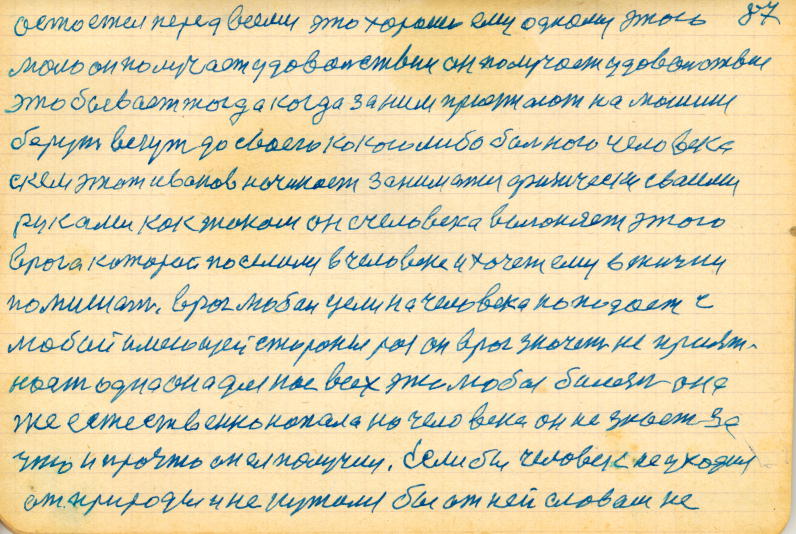 остается перед всеми это хорошо ему одному этого 87
мало он получает удовольствии он получает удовольствие
это бывает тогда когда за ним приезжают на машине
берут везут до своего какого либо больного человека
с кем этот иванов начинает заниматся физически своими
руками как током он с человека выгоняет этого
врага которой поселили в человеке и хочет ему в жизни
помишать. враг любой цели на человека нападает с
любой имеющей стороны раз он враг значит не прият-
ность одна она для нас всех это любая болезнь она
же естественно напала на человека он не знает за
что и про что он ея получил. Если бы человек не уходил
от природы и не пужался бы от ней словам не